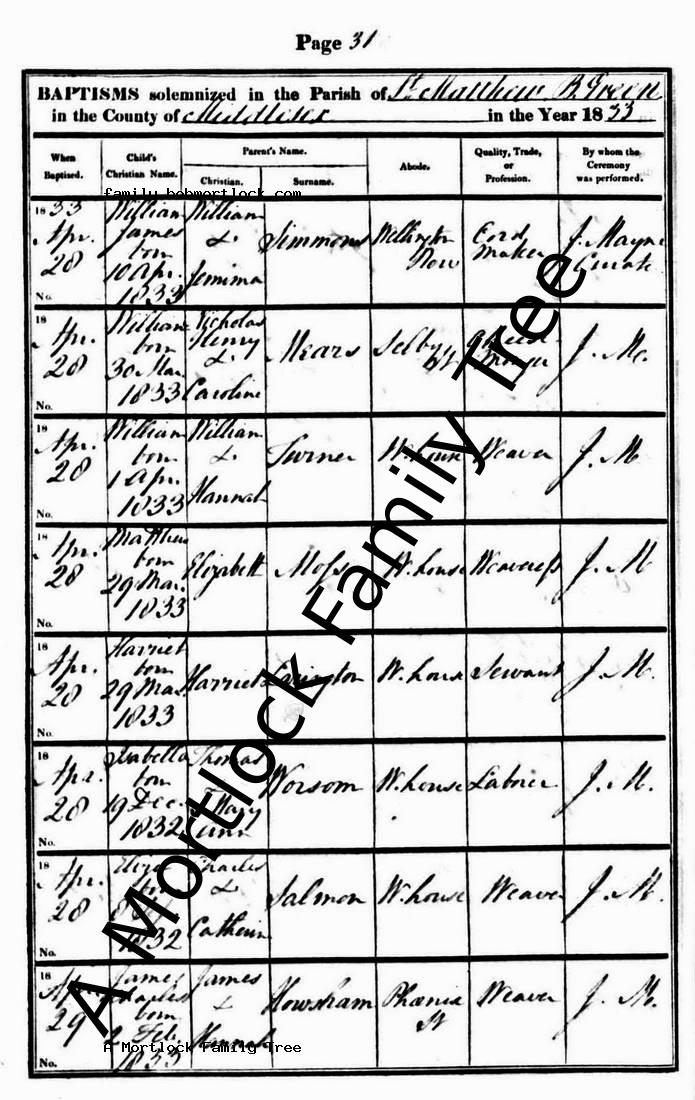 Page 31
BAPTISMS solemnized in the Parish of St Matthew B. Green
in the County of Middlesex in the Year 1833
When Baptised. Child's Christian Name. Parent's Name. Christian. Surname. Abode. Quality, Trade, or Profession. By whom the Ceremony was performed.
family.bobmortlock.com
1833 Apr. 28 No. William James born 10 Apr. 1833 William & Jemima Simmons Wellington Row Cord Maker J. Mayne Curate
18 Apr. 28 No. William born 30 Mar. 1833 Nicholas Henry & Caroline Mears Selby St Cheesemonger J. M.
18 Apr. 28 No. William born 1 Apr. 1833 William & Hannah Turner W. house Weaver J. M
18 Apr. 28 No. Matthew born 29 Mar. 1833 Elizabeth Moss W. house Weaveress J. M
18 Apr. 28 No. Harriet born 29 Mar. 1833 Harriet W. house Servant J. M.
18 Apr. 28 No. Isabella born 19 Dec. 1832 Thomas & Mary Ann Worsom W. house Laborer J. M.
18 Apr. 28 No. Eliza born 1832 Charles & Catherin Salmon W. house Weaver J. M.
18 Apr. 29 No. James Charles born 2 Feb. 1833 James & Hannah Howsham Phœnix St Weaver J. M.
A Mortlock Family Tree
A Mortlock Family Tree